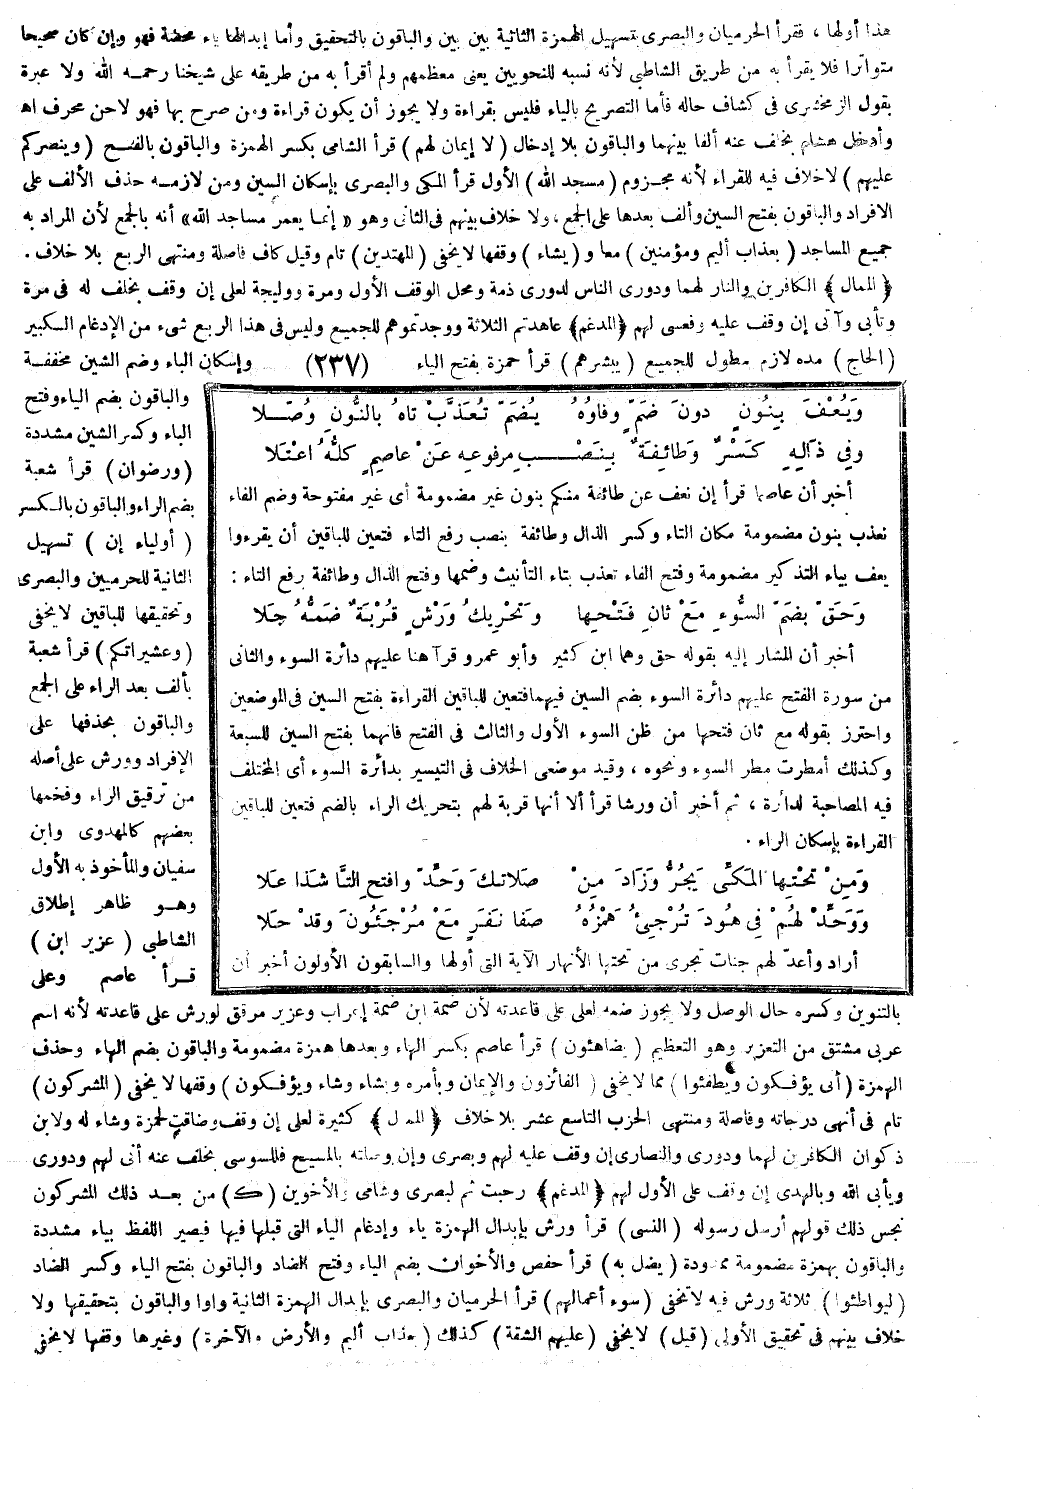 هذا أولها ، فقرأ الحرميان والبصرى بتسهيل الهمزة الثانية بين بين والباقون بالتحقيق وأما إبدالها ياء محضة فهو وإن كان صحيحا
متواترا فلا يقرأ به من طريق الشاطبى لأنه نسبه للنحويين يعنى معظمهم ولم أقرأ به من طريقه على شيخنا رحمه الله ولا عبرة
بقول الزمخشرى فى كشاف حاله فأما التصريح بالياء فليس بقراءة ولا يجوز أن يكون قراءة ومن صرح بها فهو لاحن محرف اه
وأدخل هشام بخلف عنه ألفا بينهما والباقون بلا إدخال ( لا إيمان لهم ) قرأ الشامى بكسر الهمزة والباقون بالفتح ( وينصركم
عليهم ) لاخلاف فيه للقراء لأنه مجزوم ( مسجد الله ) الأول قرأ المكى والبصرى بإسكان السين ومن لازمه حذف الألف على
الافراد والباقون بفتح السين وألف بعدها على الجمع ، ولا خلاف بينهم فى الثانى وهو « إنما يعمر مساجد الله » أنه بالجمع لأن المراد به
جميع المساجد ( بعذاب أليم ومؤمنين ) معا و ( يشاء ) وقفها لايخفى ( المهتدين ) تام وقيل كاف فاصلة ومنتهى الربع بلا خلاف .
﴿ الممال ﴾ الكافرين والنار لهما ودورى الناس لدورى ذمة ومحل الوقف الأول ومرة ووليجة لعلى إن وقف بخلف له فى مرة
وتأبى وآتى إن وقف عليه وفعسى لهم ﴿المدغم﴾ عاهدتم الثلاثة ووجدتموهم للجميع وليس فى هذا الربع شىء من الإدغام الكبير
( الحاج ) مده لازم مطول للجميع ( يبشرهم ) قرأ حمزة بفتح الياء (٢٣٧) وإسكان الباء وضم الشين مخففة
والباقون بضم الياء وفتح
الباء وكسر الشين مشددة
( ورضوان ) قرأ شعبة
بضم الراء والباقون بالكسر
( أولياء إن ) تسهيل
الثانية للحرميين والبصرى
وتحقيقها للباقين لايخفى
( وعشيراتكم ) قرأ شعبة
بألف بعد الراء على الجمع
والباقون بحذفها على
الإفراد وورش على أصله
من ترقيق الراء وفخمها
بعضهم كالمهدوى وابن
سفيان والمأخوذ به الأول
وهو ظاهر إطلاق
الشاطبى ( عزير ابن )
قرأ عاصم وعلى
وَيُعْفَ بِنُونٍ دونَ ضَمٍّ وفاوُهُ يُضَمّ تُعَذَّبْ تاهُ بالنُّونِ وُصِّلا
وفي ذالِهِ كَسْرٌ وَطائِفَةٌ بِنَصْبِ مرفوعِهِ عَنْ عاصِمٍ كلُّهُ اعْتَلا
أخبر أن عاصما قرأ إن نعف عن طائفة منكم بنون غير مضمومة أى غير مفتوحة وضم الفاء
نعذب بنون مضمومة مكان التاء وكسر الذال وطائفة بنصب رفع التاء فتعين للباقين أن يقرءوا
يعف بياء التذكير مضمومة وفتح الفاء تعذب بتاء التأنيث وضمها وفتح الذال وطائفة رفع التاء :
وَحَقّ بضَمّ السُّوءِ مَعْ ثانِ فَتْحِها وتحْرِيكُ وَرْشٍ قُرْبَةٌ ضَمُّهُ جَلا
أخبر أن المشار إليه بقوله حق وهما ابن كثير وأبو عمرو قرآ هنا عليهم دائرة السوء والثانى
من سورة الفتح عليهم دائرة السوء بضم السين فيهما فتعين للباقين القراءة بفتح السين فى الموضعين
واحترز بقوله مع ثان فتحها من ظن السوء الأول والثالث فى الفتح فانهما بفتح السين للسبعة
وكذلك أمطرت مطر السوء ونحوه ، وقيد موضعى الخلاف فى التيسير بدائرة السوء أى المختلف
فيه المصاحبة لدائرة ، ثم أخبر أن ورشا قرأ ألا أنها قربة لهم بتحريك الراء بالضم فتعين للباقين
القراءة بإسكان الراء .
وَمِنْ تحْتِها المَكِّى يَجُرُّ وَزَادَ مِنْ صَلاتَكَ وَحِّدْ وافتحِ التَّا شَذًا عَلا
وَوَحِّدْ لهُمْ فِي هُودَ تُرْجِئُ هَمْزُهُ صَفا نَفَرٍ مَعْ مُرْجَئُونَ وَقدْ حَلا
أراد وأعدّ لهم جنات تجرى من تحتها الأنهار الآية التى أولها والسابقون الأولون أخبر أن
بالتنوين وكسره حال الوصل ولا يجوز ضمه لعلى على قاعدته لأن ضمة ابن ضمة إعراب وعزير مرقق لورش على قاعدته لأنه اسم
عربى مشتق من التعزير وهو التعظيم ( يضاهئون ) قرأ عاصم بكسر الهاء وبعدها همزة مضمومة والباقون بضم الهاء وحذف
الهمزة ( أنى يؤفكون ويطفئوا ) مما لايخفى ( الفائزون والإيمان وبأمره ويشاء وشاء ويؤفكون ) وقفها لا يخفى ( المشركون )
تام فى أنهى درجاته وفاصلة ومنتهى الحزب التاسع عشر بلا خلاف ﴿ الممال ﴾ كثيرة لعلى إن وقف وضاقت لحمزة وشاء له ولابن
ذكوان الكافرين لهما ودورى والنصارى إن وقف عليه لهم وبصرى وإن وصلته بالمسيح فللسوسى بخلف عنه أنى لهم ودورى
ويأبى الله وبالهدى إن وقف على الأول لهم ﴿المدغم﴾ رحبت ثم لبصرى وشامى والأخوين (ك) من بعد ذلك المشركون
نجس ذلك قولهم أرسل رسوله ( النسى ) قرأ ورش بإبدال الهمزة ياء وإدغام الياء التى قبلها فيها فيصير اللفظ بياء مشددة
والباقون بهمزة مضمومة ممدودة ( يضل به ) قرأ حفص والأخوان بضم الياء وفتح الضاد والباقون بفتح الياء وكسر الضاد
( ليواطئوا ) ثلاثة ورش فيه لاتخفى ( سوء أعمالهم ) قرأ الحرميان والبصرى بإبدال الهمزة الثانية واوا والباقون بتحقيقها ولا
خلاف بينهم فى تحقيق الأولى ( قيل ) لايخفى ( عليهم الشقة ) كذلك ( عذاب أليم والأرض والآخرة ) وغيرها وقفها لايخفى